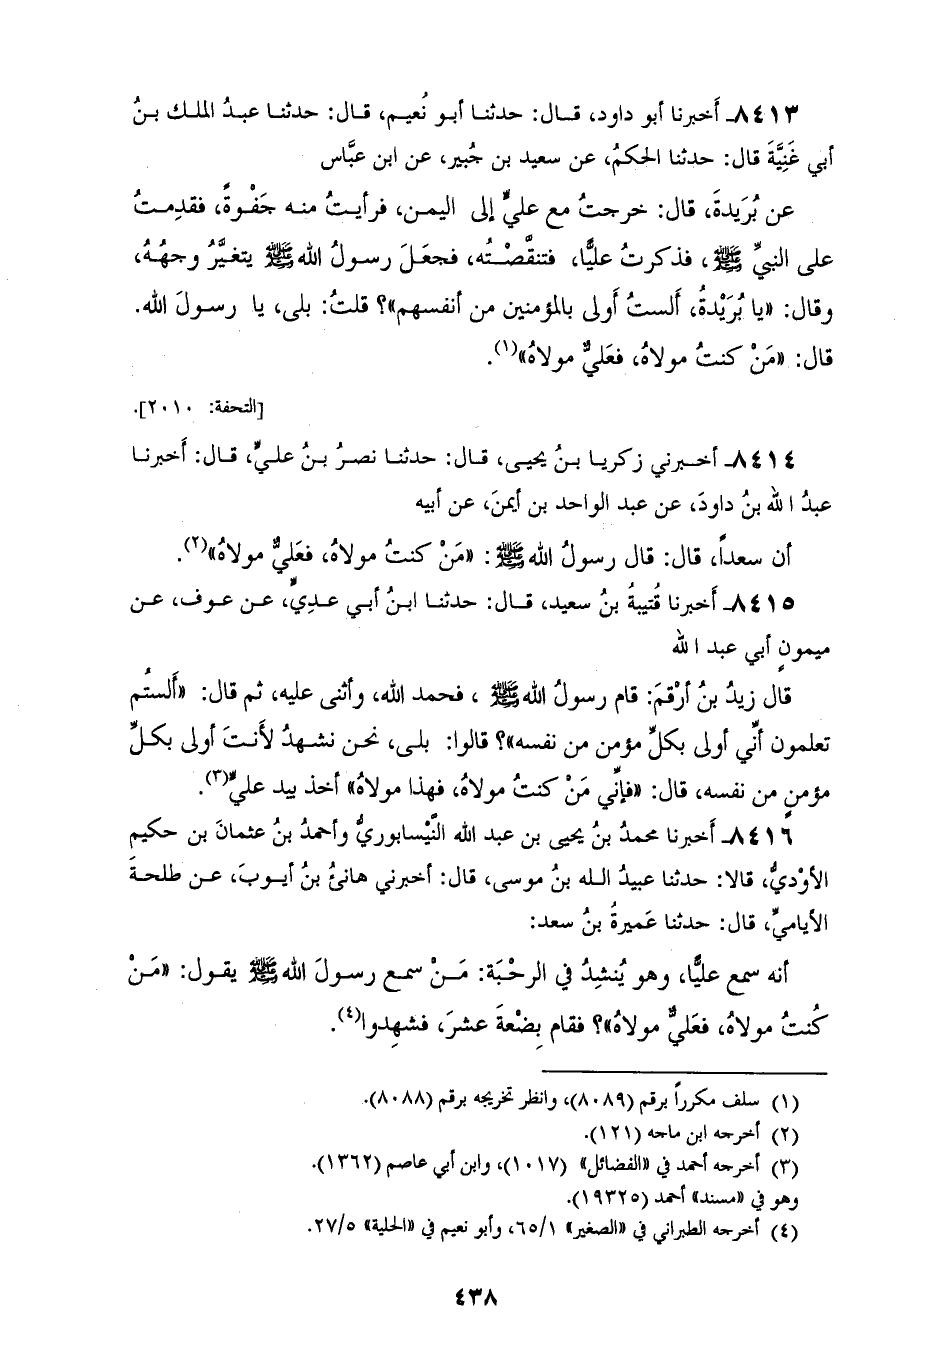 ٨٤١٣ـ أَخبرنا أبو داود، قـال: حدثنـا أبـو نُعيـم، قـال: حدثنـا عبـدُ الملـك بـنُ
أبي غَنِيَّةَ قال: حدثنا الحكمُ، عن سعيد بن جُبير، عن ابن عبَّاس
عن بُرَيدةَ، قال: خرجتُ مع عليٍّ إلى اليمن، فرأيـتُ منـه جَفْـوةً، فقدِمـتُ
على النبيِّ ﷺ، فذكرتُ عليًّا، فتنقَّصْـتُه، فجعَلَ رسـولُ الله ﷺ يتغيَّرُ وجهُـهُ،
وقال: «يا بُرَيْدةُ، ألستُ أَولى بالمؤمنين من أنفسهم»؟ قلتُ: بلى، يا رسـولَ الله.
قال: «مَنْ كنتُ مولاهُ، فعَليٌّ مولاهُ»(١).
[التحفة: ٢٠١٠].
٨٤١٤ـ أخـبرني زكريـا بـنُ يحيـى، قـال: حدثنـا نصـرُ بـنُ علـيٍّ، قـال: أَخبرنـا
عبدُ الله بنُ داودَ، عن عبد الواحد بن أيمنَ، عن أبيه
أن سعداً، قال: قال رسولُ الله ﷺ: «مَنْ كنتُ مولاهُ، فعَليٌّ مولاهُ»(٢).
٨٤١٥ـ أَخبرنا قُتيبةُ بنُ سعيد، قـال: حدثنـا ابـنُ أبـي عـديٍّ، عـن عـوف، عـن
ميمونٍ أبي عبد الله
قال زيدُ بنُ أرْقمَ: قام رسولُ الله ﷺ، فحمد الله، وأثنى عليه، ثم قال: «أَلستُم
تعلمون أنِّي أولى بكلِّ مؤمن من نفسه»؟ قالوا: بلـى، نحـن نشـهدُ لأَنـتَ أولى بكـلِّ
مؤمنٍ من نفسه، قال: «فإنِّي مَنْ كنتُ مولاهُ، فهذا مولاهُ» أخذ بيد عليٍّ(٣).
٨٤١٦ـ أَخبرنا محمدُ بنُ يحيى بن عبد الله النَّيْسابوريُّ وأحمدُ بنُ عثمانَ بن حكيم
الأوْديُّ، قالا: حدثنا عبيدُ الـله بنُ موسى، قال: أخبرني هانئُ بنُ أيـوبَ، عـن طلحـةَ
الأياميِّ، قال: حدثنا عَميرةُ بنُ سعد:
أنه سمع عليًّا، وهو يُنشِدُ في الرحْبَة: مَـنْ سمـع رسـولَ الله ﷺ يقـول: «مَـنْ
كُنتُ مولاهُ، فعَليٌّ مولاهُ»؟ فقام بِضْعةَ عشرَ، فشهِدوا(٤).
(١) سلف مكرراً برقم (٨٠٨٩)، وانظر تخريجه برقم (٨٠٨٨).
(٢) أخرجه ابن ماجه (١٢١).
(٣) أخرجه أحمد في «الفضائل» (١٠١٧)، وابن أبي عاصم (١٣٦٢).
وهو في «مسند» أحمد (١٩٣٢٥).
(٤) أخرجه الطبراني في «الصغير» ٦٥/١، وأبو نعيم في «الحلية» ٢٧/٥.
٤٣٨